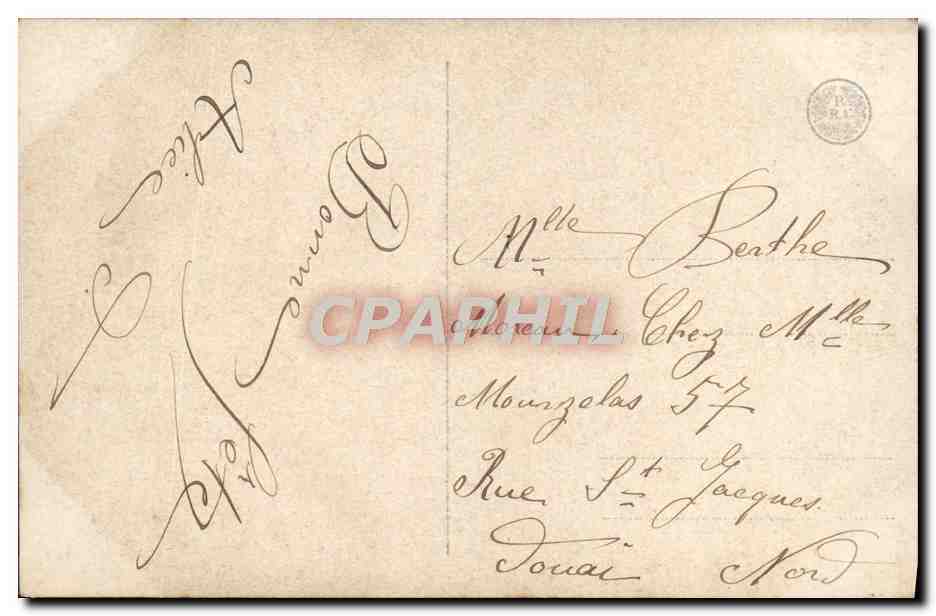 Bonne
Fête
Alice
Mlle Berthe
Moreau Chez Mlle
Mourzelas 57
Rue St Jacques
Douai Nord
CPAPHIL